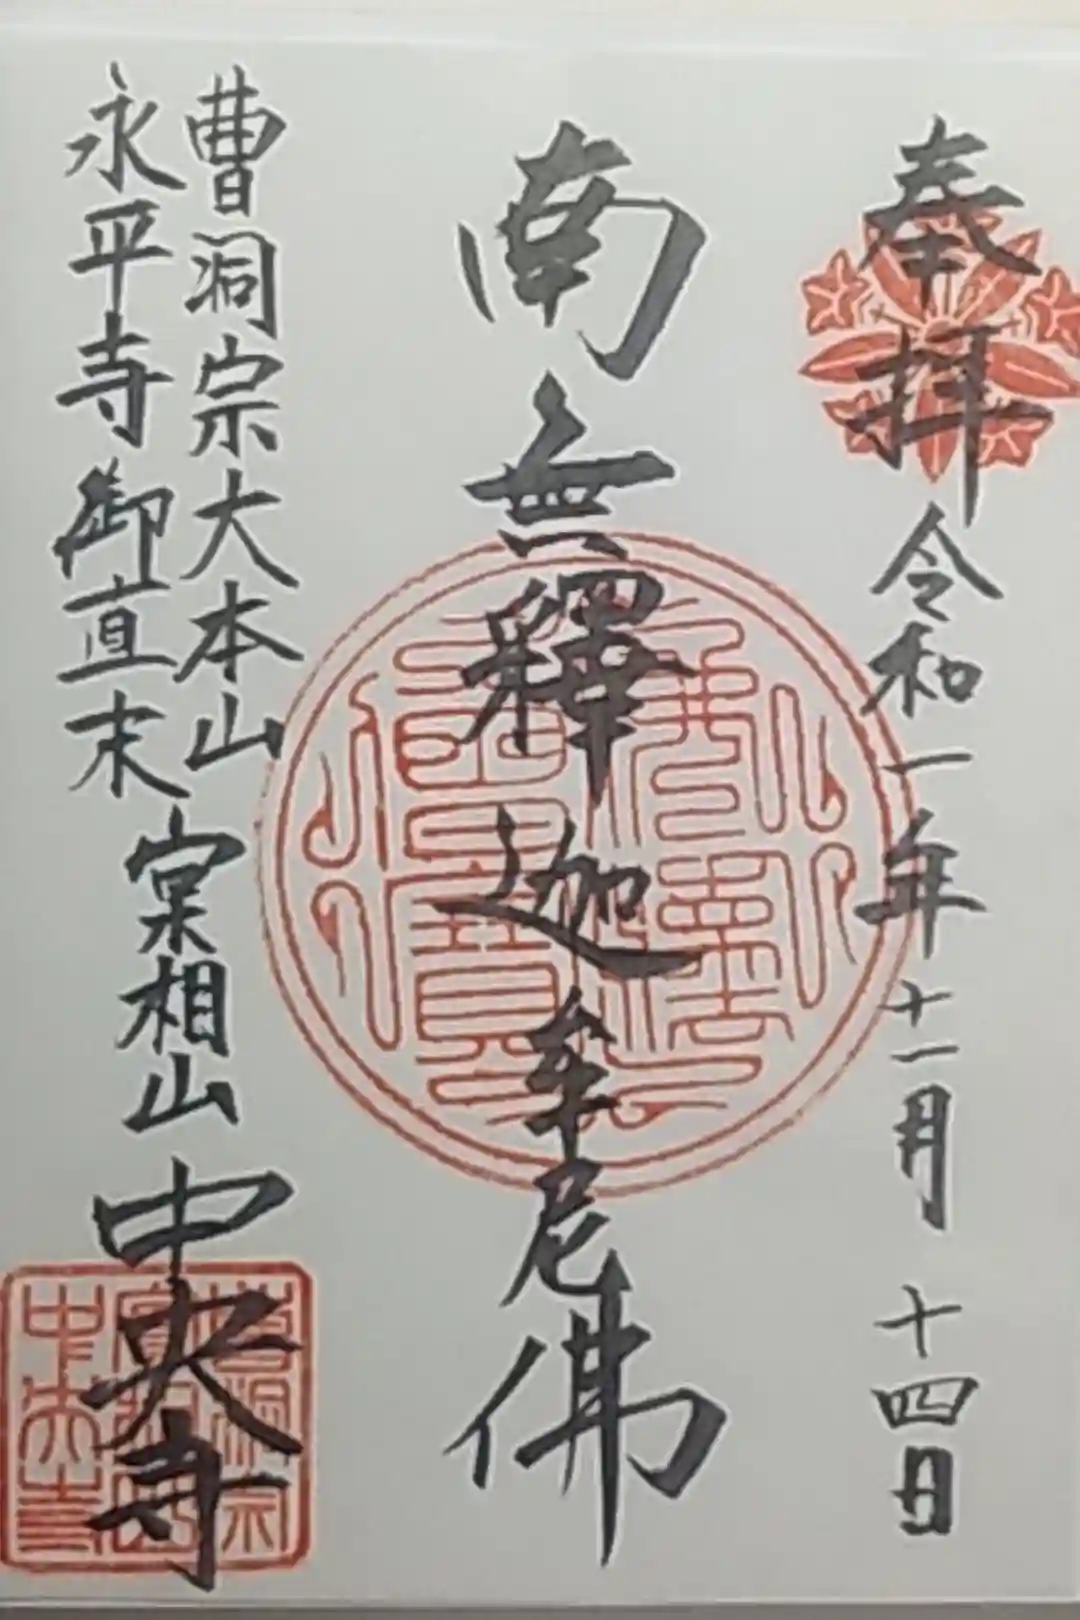 奉拝
令和一年十一月十四日
南無釋迦牟尼佛
曹洞宗大本山
永平寺御直末
実相山
中央寺
佛法僧寶
曹洞宗
實相山
中央寺